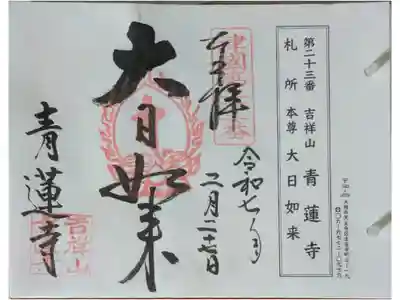 第二十三番 吉祥山 青蓮寺
札所 本尊 大日如来
奉拝
令和七年
二月二十七日
大日如来
青蓮寺
吉祥山